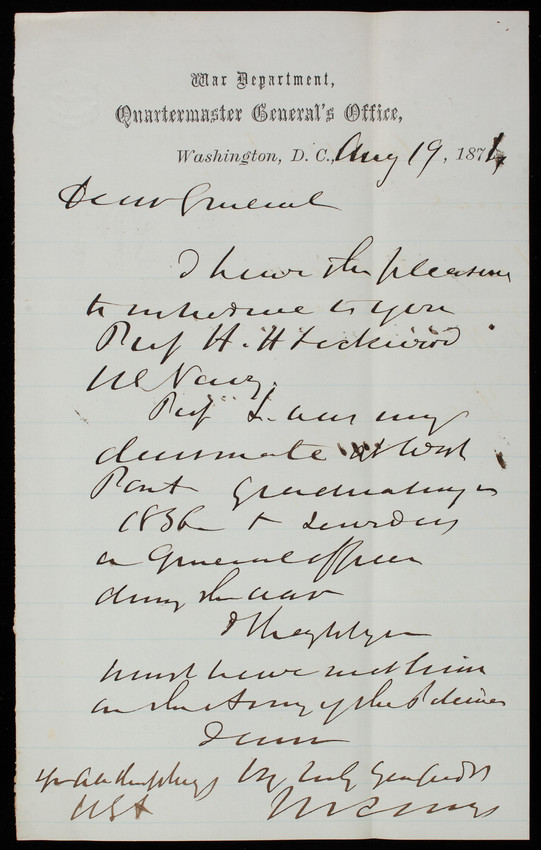 War Department,
Quartermaster General's Office,
Washington, D. C., Aug 19, 1876
Dear General
I have the pleasure
to introduce to you
Prof H. H Lockwood
US Navy.
Prof L. was my
classmate at West
Point graduating in
1836 &
a General officer
during the war
I thought you
must have met him
in the Army of the Potomac
I am
Yr truly Yr friend
USA M C Meigs